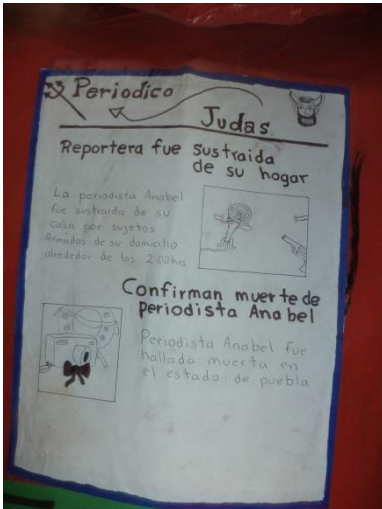 Periodico
Judas
Reportera fue sustraida
de su hogar
La periodista Anabel
fue sustraida de su
casa por sujetos
Armados de su domicilio
alrededor de las 2:00hrs
Confirman muerte de
periodista Anabel
Periodista Anabel fue
hallada muerta en
el estado de puebla